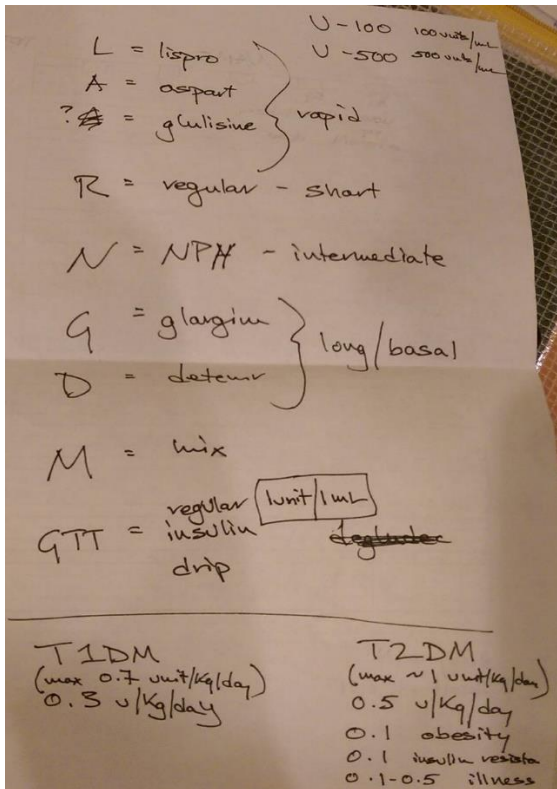 U-100 100 units/mL
U-500 500 units/mL
L = lispro
A = aspart
? = glulisine
rapid
R = regular - short
N = NPH - intermediate
G = glargine
D = detemir
long/basal
M = mix
GTT = regular insulin drip
1unit/1mL
degludec
T1DM
(max 0.7 unit/kg/day)
0.3 u/kg/day
T2DM
(max ~1 unit/kg/day)
0.5 u/kg/day
0.1 obesity
0.1 insulin resista
0.1-0.5 illness